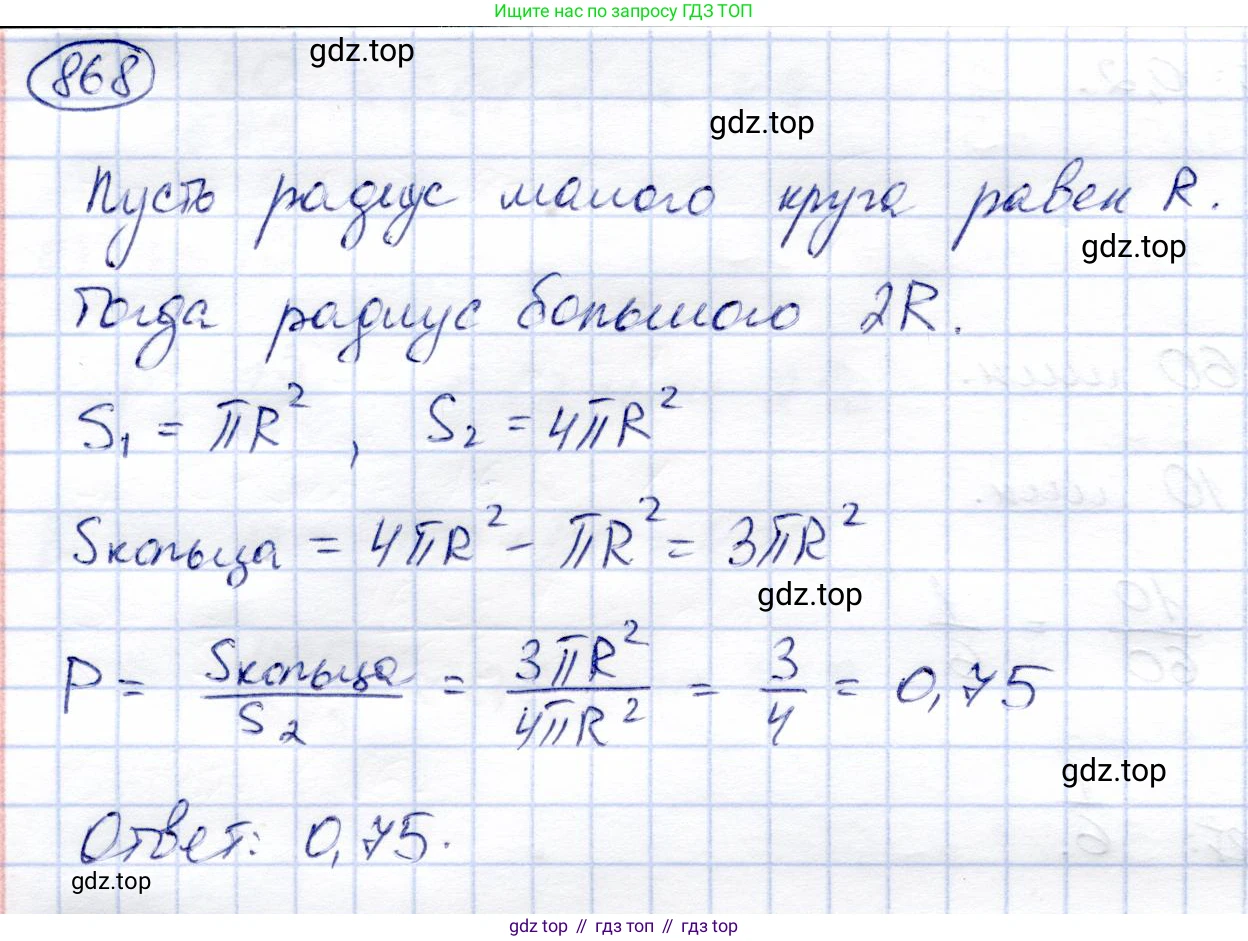 Ищите нас по запросу ГДЗ ТОП
868
gdz.top
gdz.top
Пусть радиус малого круга равен R.
gdz.top
Тогда радиус большого 2R.
S₁ = πR², S₂ = 4πR²
Sкольца = 4πR² - πR² = 3πR²
gdz.top
P = Sкольца/S₂ = 3πR²/4πR² = 3/4 = 0,75
gdz.top
Ответ: 0,75.
gdz.top
gdz top // гдз топ // гдз top